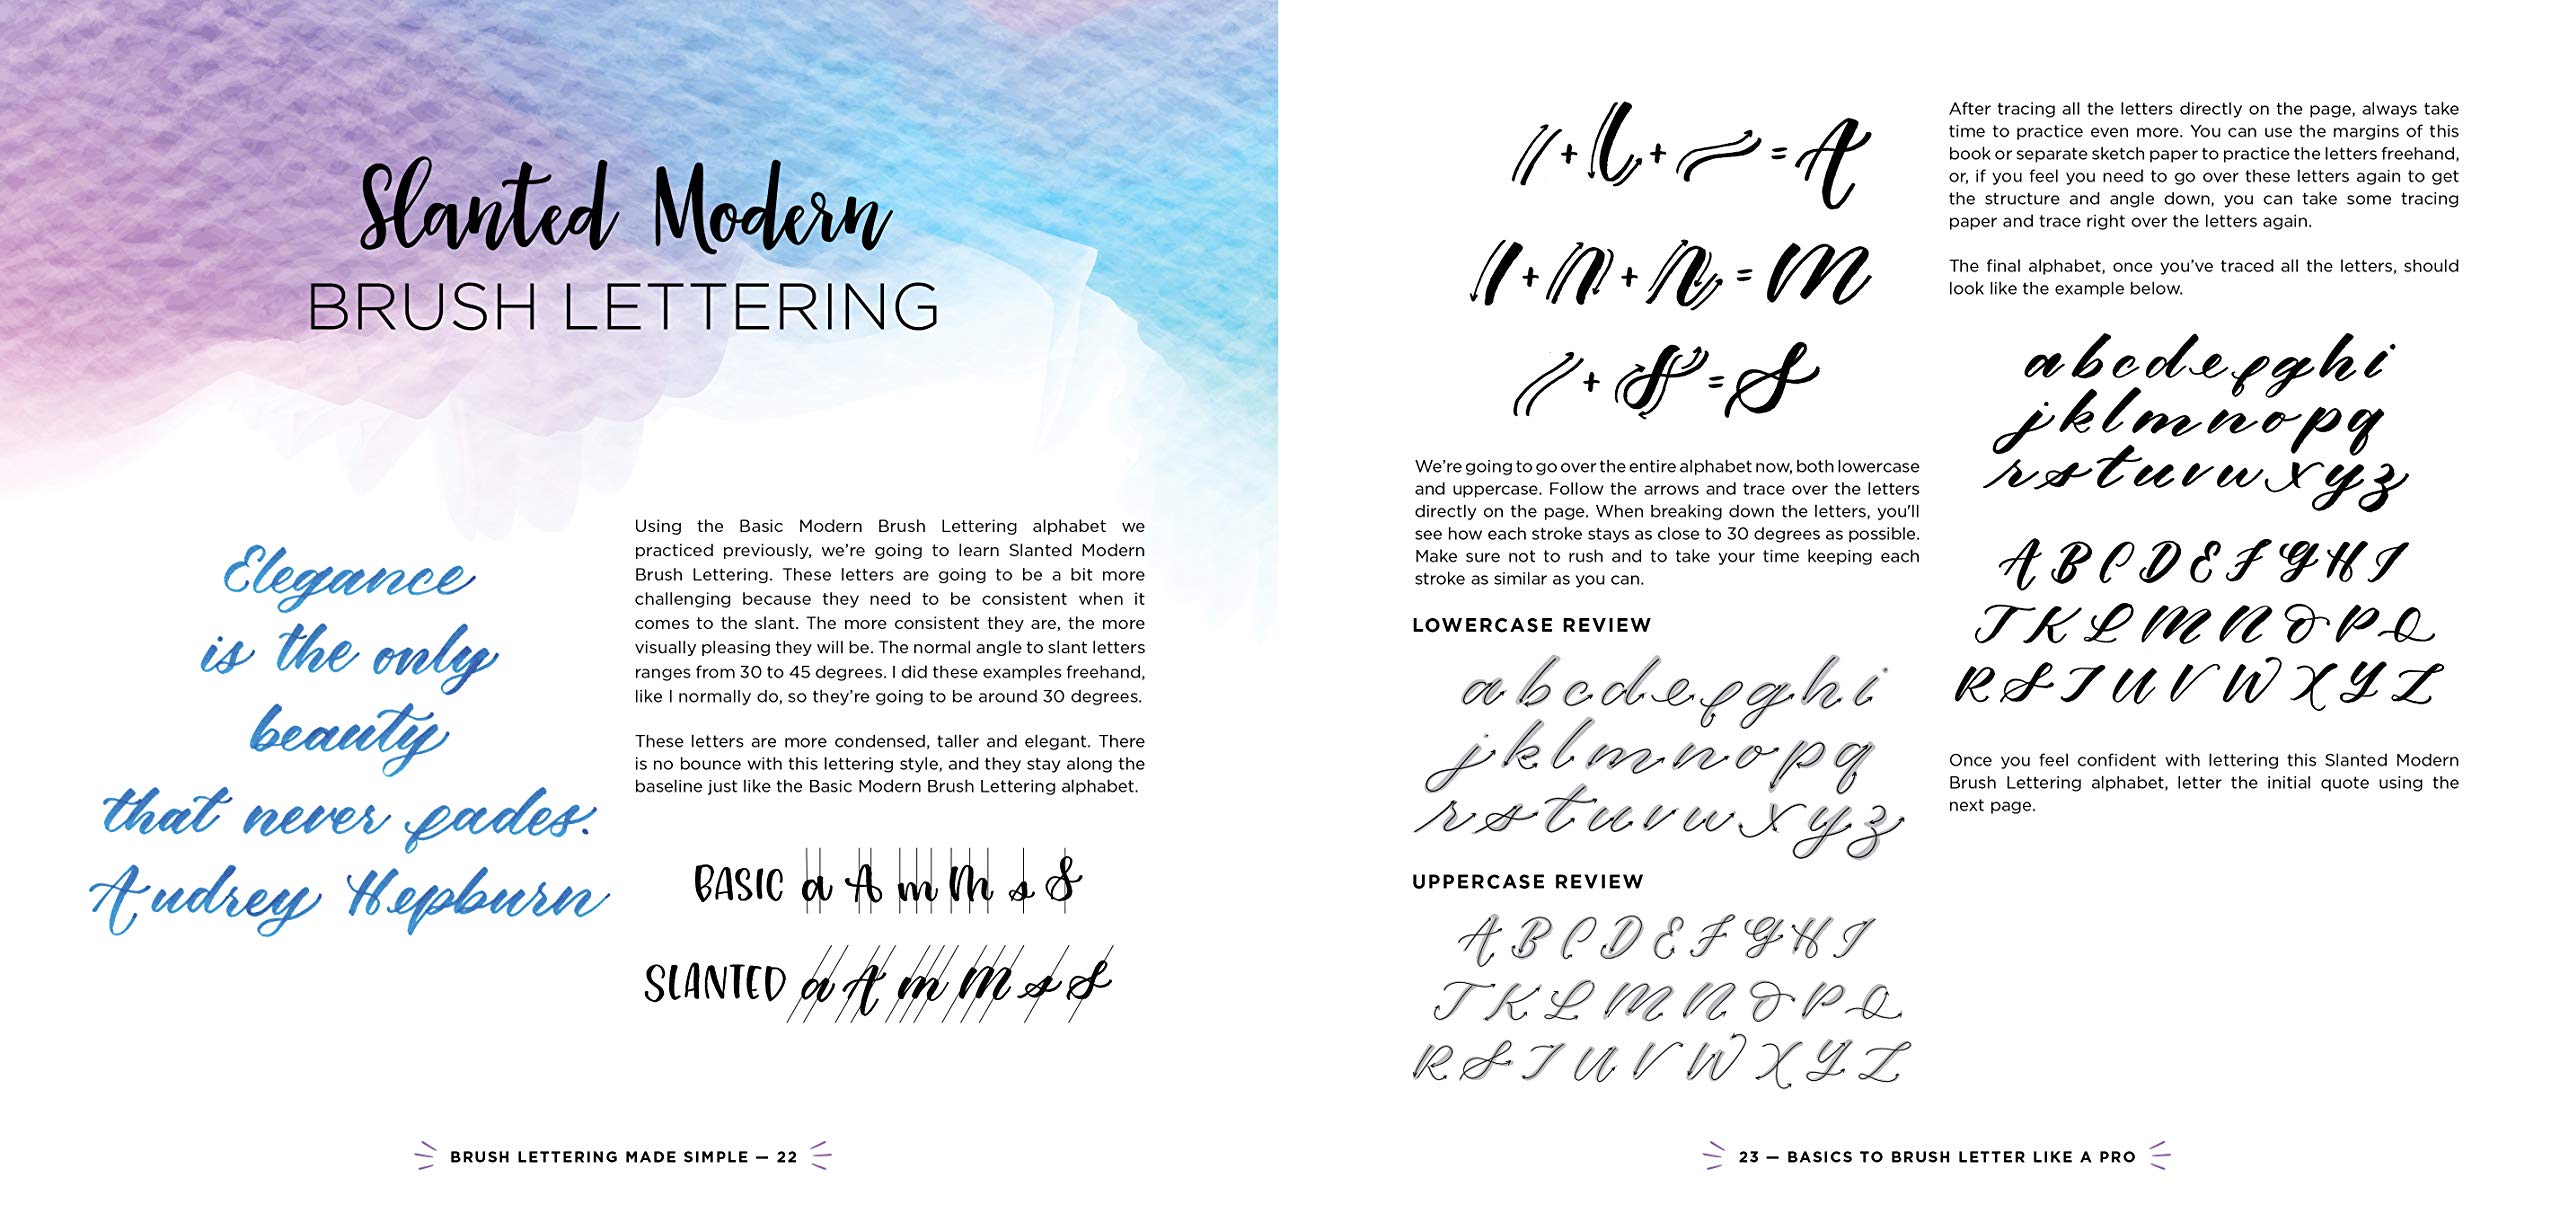 Slanted Modern
BRUSH LETTERING
Elegance
is the only
beauty
that never fades.
Audrey Hepburn
Using the Basic Modern Brush Lettering alphabet we
practiced previously, we're going to learn Slanted Modern
Brush Lettering. These letters are going to be a bit more
challenging because they need to be consistent when it
comes to the slant. The more consistent they are, the more
visually pleasing they will be. The normal angle to slant letters
ranges from 30 to 45 degrees. I did these examples freehand,
like I normally do, so they're going to be around 30 degrees.
These letters are more condensed, taller and elegant. There
is no bounce with this lettering style, and they stay along the
baseline just like the Basic Modern Brush Lettering alphabet.
BASIC a A m M s S
SLANTED a A m M s S
BRUSH LETTERING MADE SIMPLE — 22
+ + = A
+ + = M
+ = S
We're going to go over the entire alphabet now, both lowercase
and uppercase. Follow the arrows and trace over the letters
directly on the page. When breaking down the letters, you'll
see how each stroke stays as close to 30 degrees as possible.
Make sure not to rush and to take your time keeping each
stroke as similar as you can.
LOWERCASE REVIEW
a b c d e f g h i
j k l m n o p q
r s t u v w x y z
UPPERCASE REVIEW
A B C D E F G H I
J K L M N O P Q
R S T U V W X Y Z
After tracing all the letters directly on the page, always take
time to practice even more. You can use the margins of this
book or separate sketch paper to practice the letters freehand,
or, if you feel you need to go over these letters again to get
the structure and angle down, you can take some tracing
paper and trace right over the letters again.
The final alphabet, once you've traced all the letters, should
look like the example below.
a b c d e f g h i
j k l m n o p q
r s t u v w x y z
A B C D E F G H I
J K L M N O P Q
R S T U V W X Y Z
Once you feel confident with lettering this Slanted Modern
Brush Lettering alphabet, letter the initial quote using the
next page.
23 — BASICS TO BRUSH LETTER LIKE A PRO